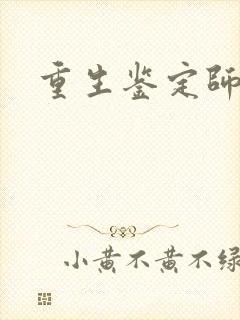 重生鉴定师
小黄不黄不绿